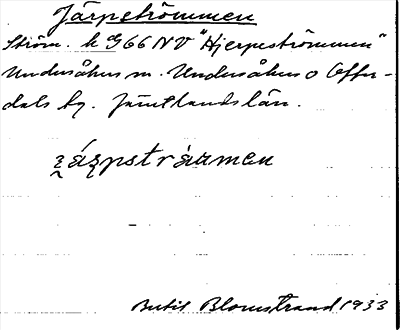 Järpströmmen
Ström. k G66 NV "Hjerpeströmmen"
Undersåkers sn. Undersåkers o Offer-
dals tg. Jämtlands län.
Bertil Blomstrand 1933